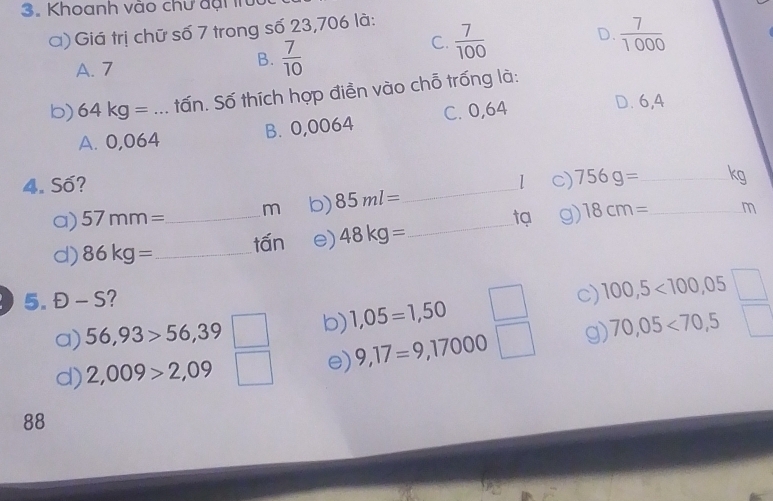 3. Khoanh vào chữ đặt trước
a) Giá trị chữ số 7 trong số 23,706 là:
A. 7 B. 7/10 C. 7/100 D. 7/1 000
b) 64 kg = ... tấn. Số thích hợp điền vào chỗ trống là:
A. 0,064 B. 0,0064 C. 0,64 D. 6,4
4. Số?
a) 57 mm = ______ m b) 85 ml = ______ l c) 756 g = ______ kg
d) 86 kg = ______ tấn e) 48 kg = ______ tạ g) 18 cm = ______ m
5. Đ – S?
a) 56,93 > 56,39 b) 1,05 = 1,50 c) 100,5 < 100,05
d) 2,009 > 2,09 e) 9,17 = 9,17000 g) 70,05 < 70,5
88